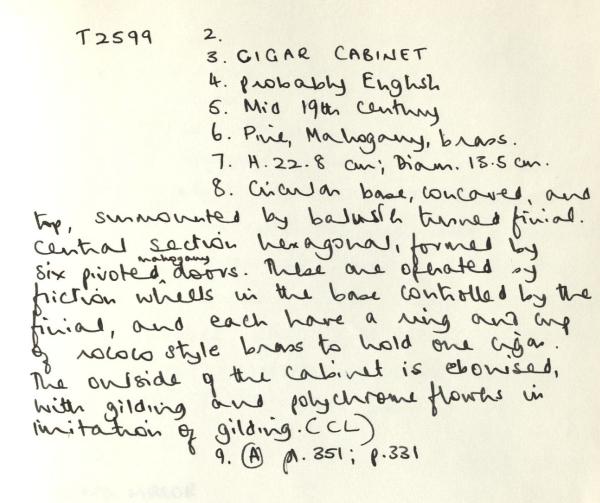 T2599 2.
3. CIGAR CABINET
4. probably English
5. Mid 19th century
6. Pine, Mahogany, brass.
7. H. 22.8 cm; Diam. 13.5 cm.
8. Circular base, concaved, and
top, surmounted by baluster turned finial.
Central section hexagonal, formed by
six pivoted mahogany doors. These are operated by
friction wheels in the base controlled by the
finial, and each have a ring and cup
of rococo style brass to hold one cigar.
The outside of the cabinet is ebonised,
with gilding and polychrome flowers in
imitation of gilding. (CCL)
9. (A) pl. 351; p. 331